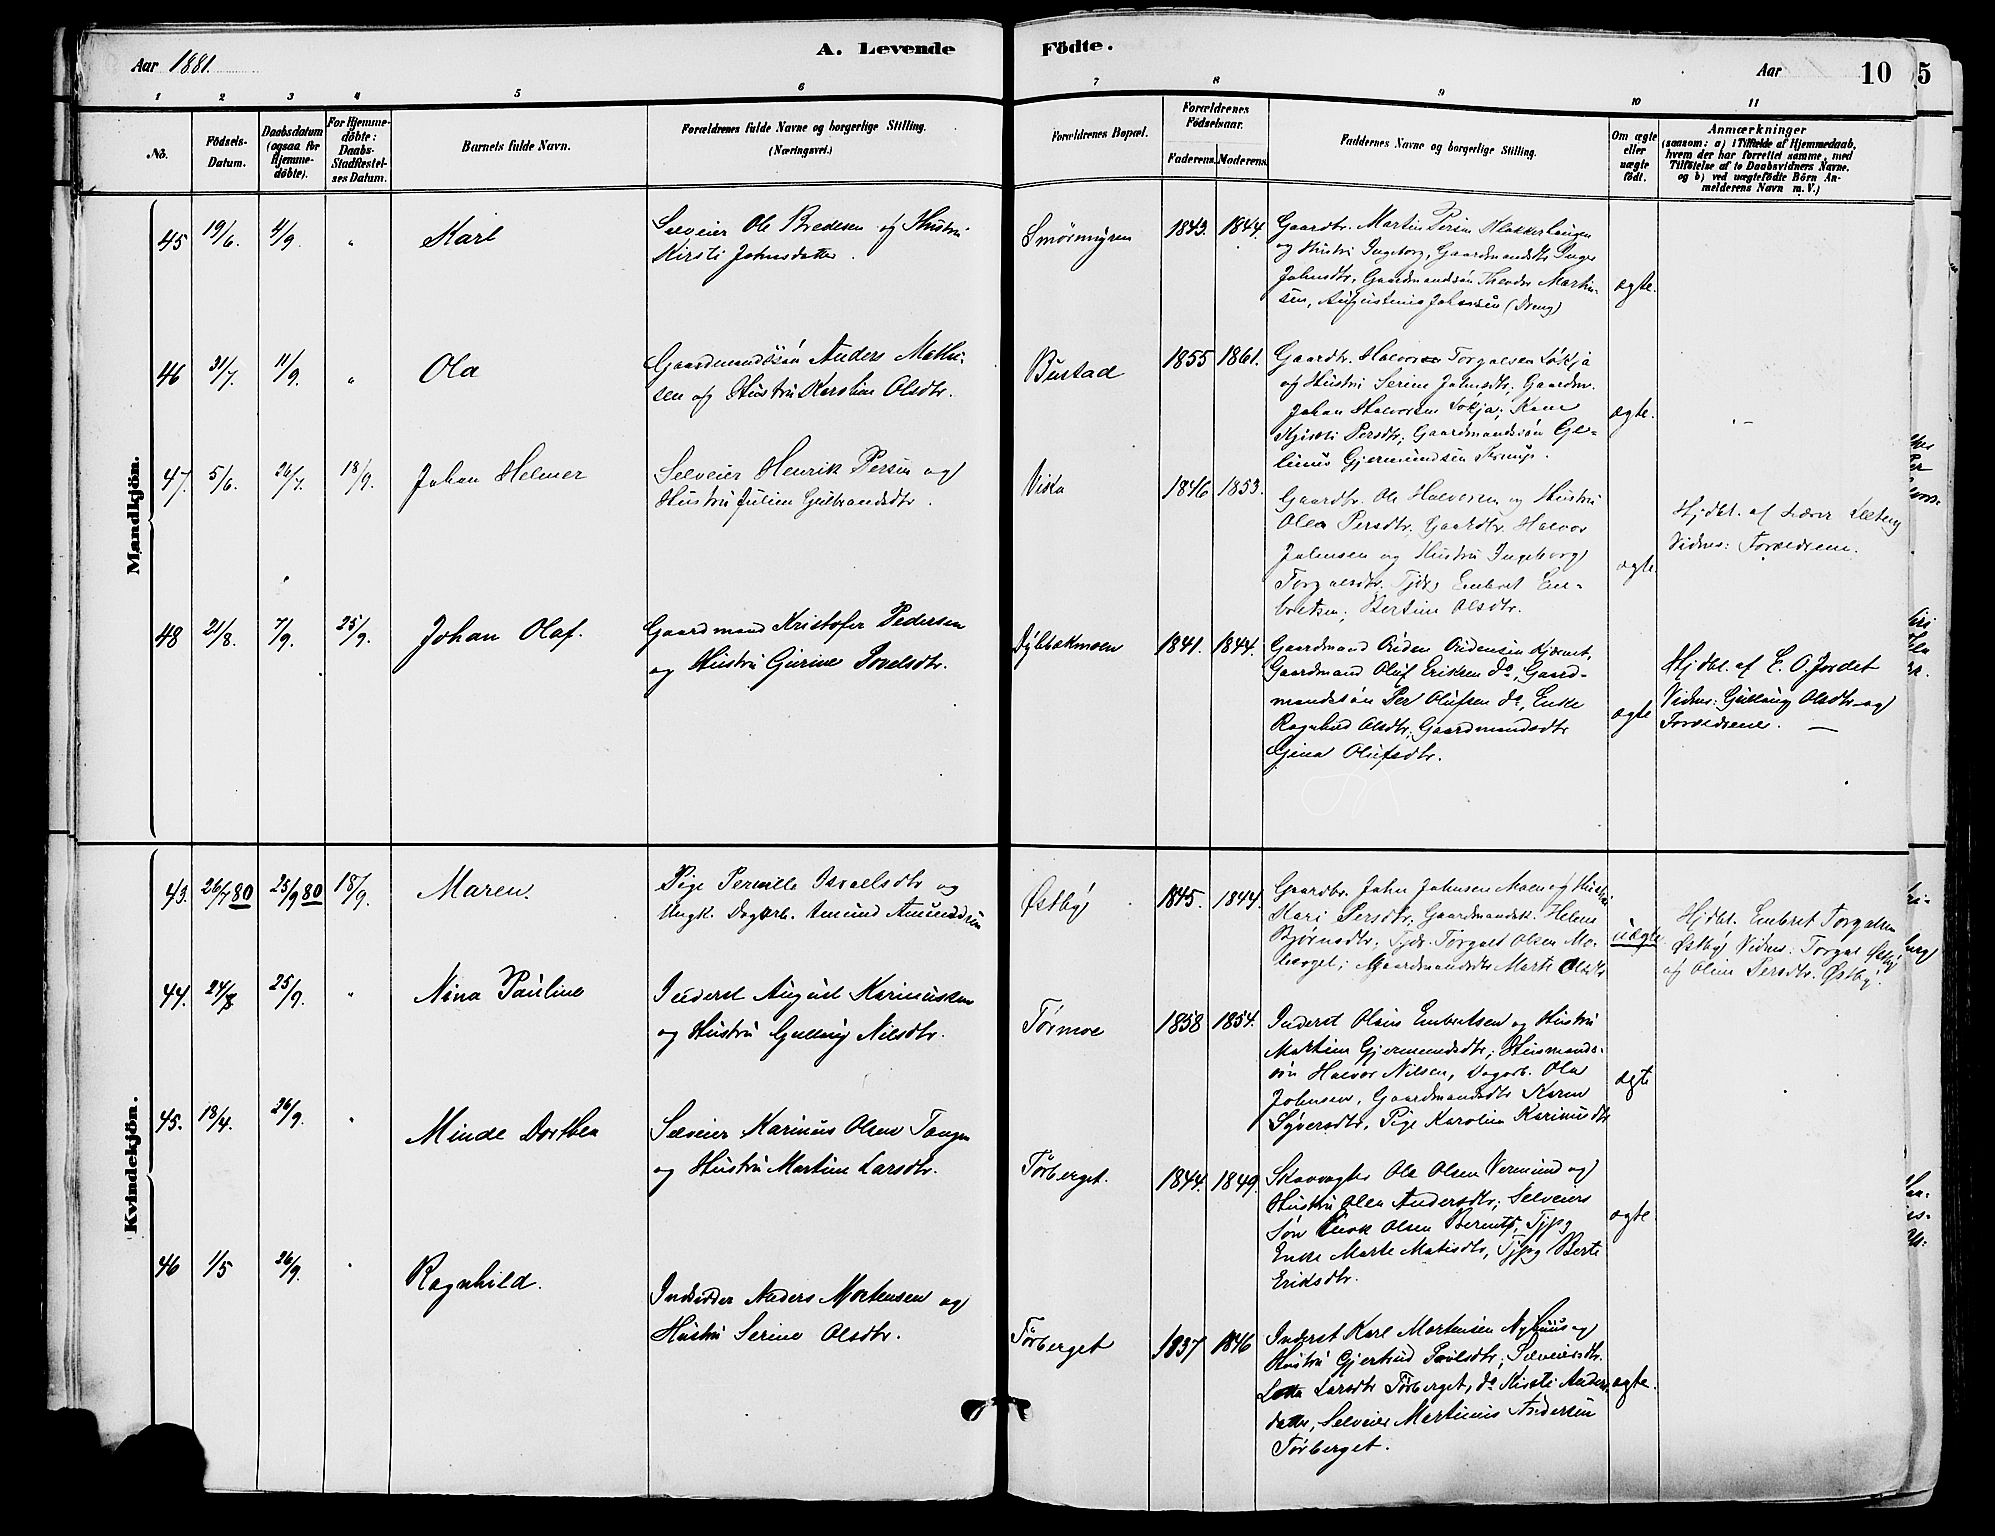 Aar 1881.
A. Levende
Födte.
Aar
10
5
1 2 3 4 5 6 7 8 9 10 11
No.
Födsels-
Datum.
Daabsdatum
(ogsaa for
Hjemme-
döbte).
For Hjemme-
döbte:
Daabs-
Stadfæstel-
ses Datum.
Barnets fulde Navn.
Forældrenes fulde Navne og borgerlige Stilling.
(Næringsvei.)
Forældrenes Bopæl.
Forældrenes
Födselsaar.
Faderens. Moderens.
Faddernes Navne og borgerlige Stilling.
Om ægte
eller
uægte
födt.
Anmærkninger
(saasom: a) i Tilfælde af Hjemmedaab,
hvem der har forrettet samme, med
Tilföielse af to Daabsvidners Navne,
og b) ved uægtefödte Börn An-
melderens Navn m. V.)
Mandkjön.
45 19/6. 4/9. "
Karl
Selveier Ole Bredesen og Hustru
Kirsti Johnsdatter.
Smörmyren
1843. 1844.
Gaardbr. Martin Persen Flakkerhaugen
og Hustru Ingeborg, Gaardmandsdtr Inger
Johnsdtr, Gaardmandssön Theodor Martin-
sen, Augustinus Johnsen (Dreng)
ægte.
46 31/7. 11/9. "
Ola
Gaardmandssön Anders Mathi-
sen og Hustru Karoline Olsdtr.
Bustad
1855 1861.
Gaardbr. Halvor Torgalsen Lökja
og Hustru Serine Johnsdtr, Gaardm.
Johan Halvorsen Lökja; Kone
Kjersti Persdtr; Gaardmandssön Ge-
linus Gjermundsen
ægte.
47. 5/6. 26/7. 18/9.
Johan Helmer
Selveier Henrik Persen og
Hustru Juline Gulbrandsdtr.
Viska
1846 1853.
Gaardbr. Ole Halvorsen og Hustru
Olea Persdtr; Gaardbr. Halvor
Johnsen og Hustru Ingeborg
Torgalsdtr. Tjdr. Embret Em-
bretsen; Bertine Olsdtr.
ægte.
Hjdbt. af Lærer
Vidner: Forældrene.
48 21/8. 7/9. 25/9.
Johan Olaf.
Gaardmand Kristofer Pedersen
og Hustru Gurine Iraelsdtr.
Dylbækmoen
1841. 1844.
Gaardmand Oriden Oridensen Kjærnet,
Gaardmand Oluf Eriksen do, Gaard-
mandssön Per Olufsen do, Enke
Ragnhild Olsdtr, Gaardmandsdtr
Gina Olufsdtr.
ægte
Hjdbt. af E. O. Jordet
Vidner: Gullaug Olsdtr og
Forældrene. —
Kvindekjön.
43. 26/7 80 25/9 80 18/9.
Maren.
Pige Pernille Israelsdtr og
Ungk. Dagarb. Amund Amundsen
Østby
1845. 1844.
Gaardbr. John Johnsen Moen og Hustru
Kari Persdtr; Gaardmandsk. Helene
Björnsdtr; Tjdr. Torgal Olsen Mo-
berget; Gaardmandsdtr Marte Olsdtr
uægte
Hjdbt. Embret Torgalsen
Østby Vidner: Torgal Østby
og Oline Persdtr. Østby.
44. 24/8 25/9. "
Nina Pauline
Inderst August Karinusen
og Hustru Gullaug Nilsdtr.
Törmoe
1858 1854.
Inderst Olaus Embretsen og Hustru
Martine Gjermundsdtr; Husmands-
sön Halvor Nilsen, Dagarb. Ola
Johnsen, Gaardmandsdtr Karen
Syversdtr, Pige Karoline Karinusdtr
ægte
45. 18/4. 26/9. "
Minde Dorthea
Selveier Karinus Olsen Tangen
og Hustru Martine Larsdtr.
Törberget.
1844. 1849.
Skovvogter Ole Olsen Vermund og
Hustru Olea Andersdtr; Selveiers
Sön Enok Olsen Berent, Tjpg
Enke Marte Matisdtr, Tjpg Berte
Eriksdtr.
ægte.
46 1/5 26/9. "
Ragnhild.
Indsidder Anders Mortensen og
Hustru Serine Olsdtr.
Törberget
1837 1846
Inderst Karl Mortensen Nyhuus og
Hustru Gjertrud Povlsdtr; Selveiersdtr.
Lotta Larsdtr Törberget, do Kirsti Anders-
datter, Selveier Martinus Andersen
Törberget.
ægte.